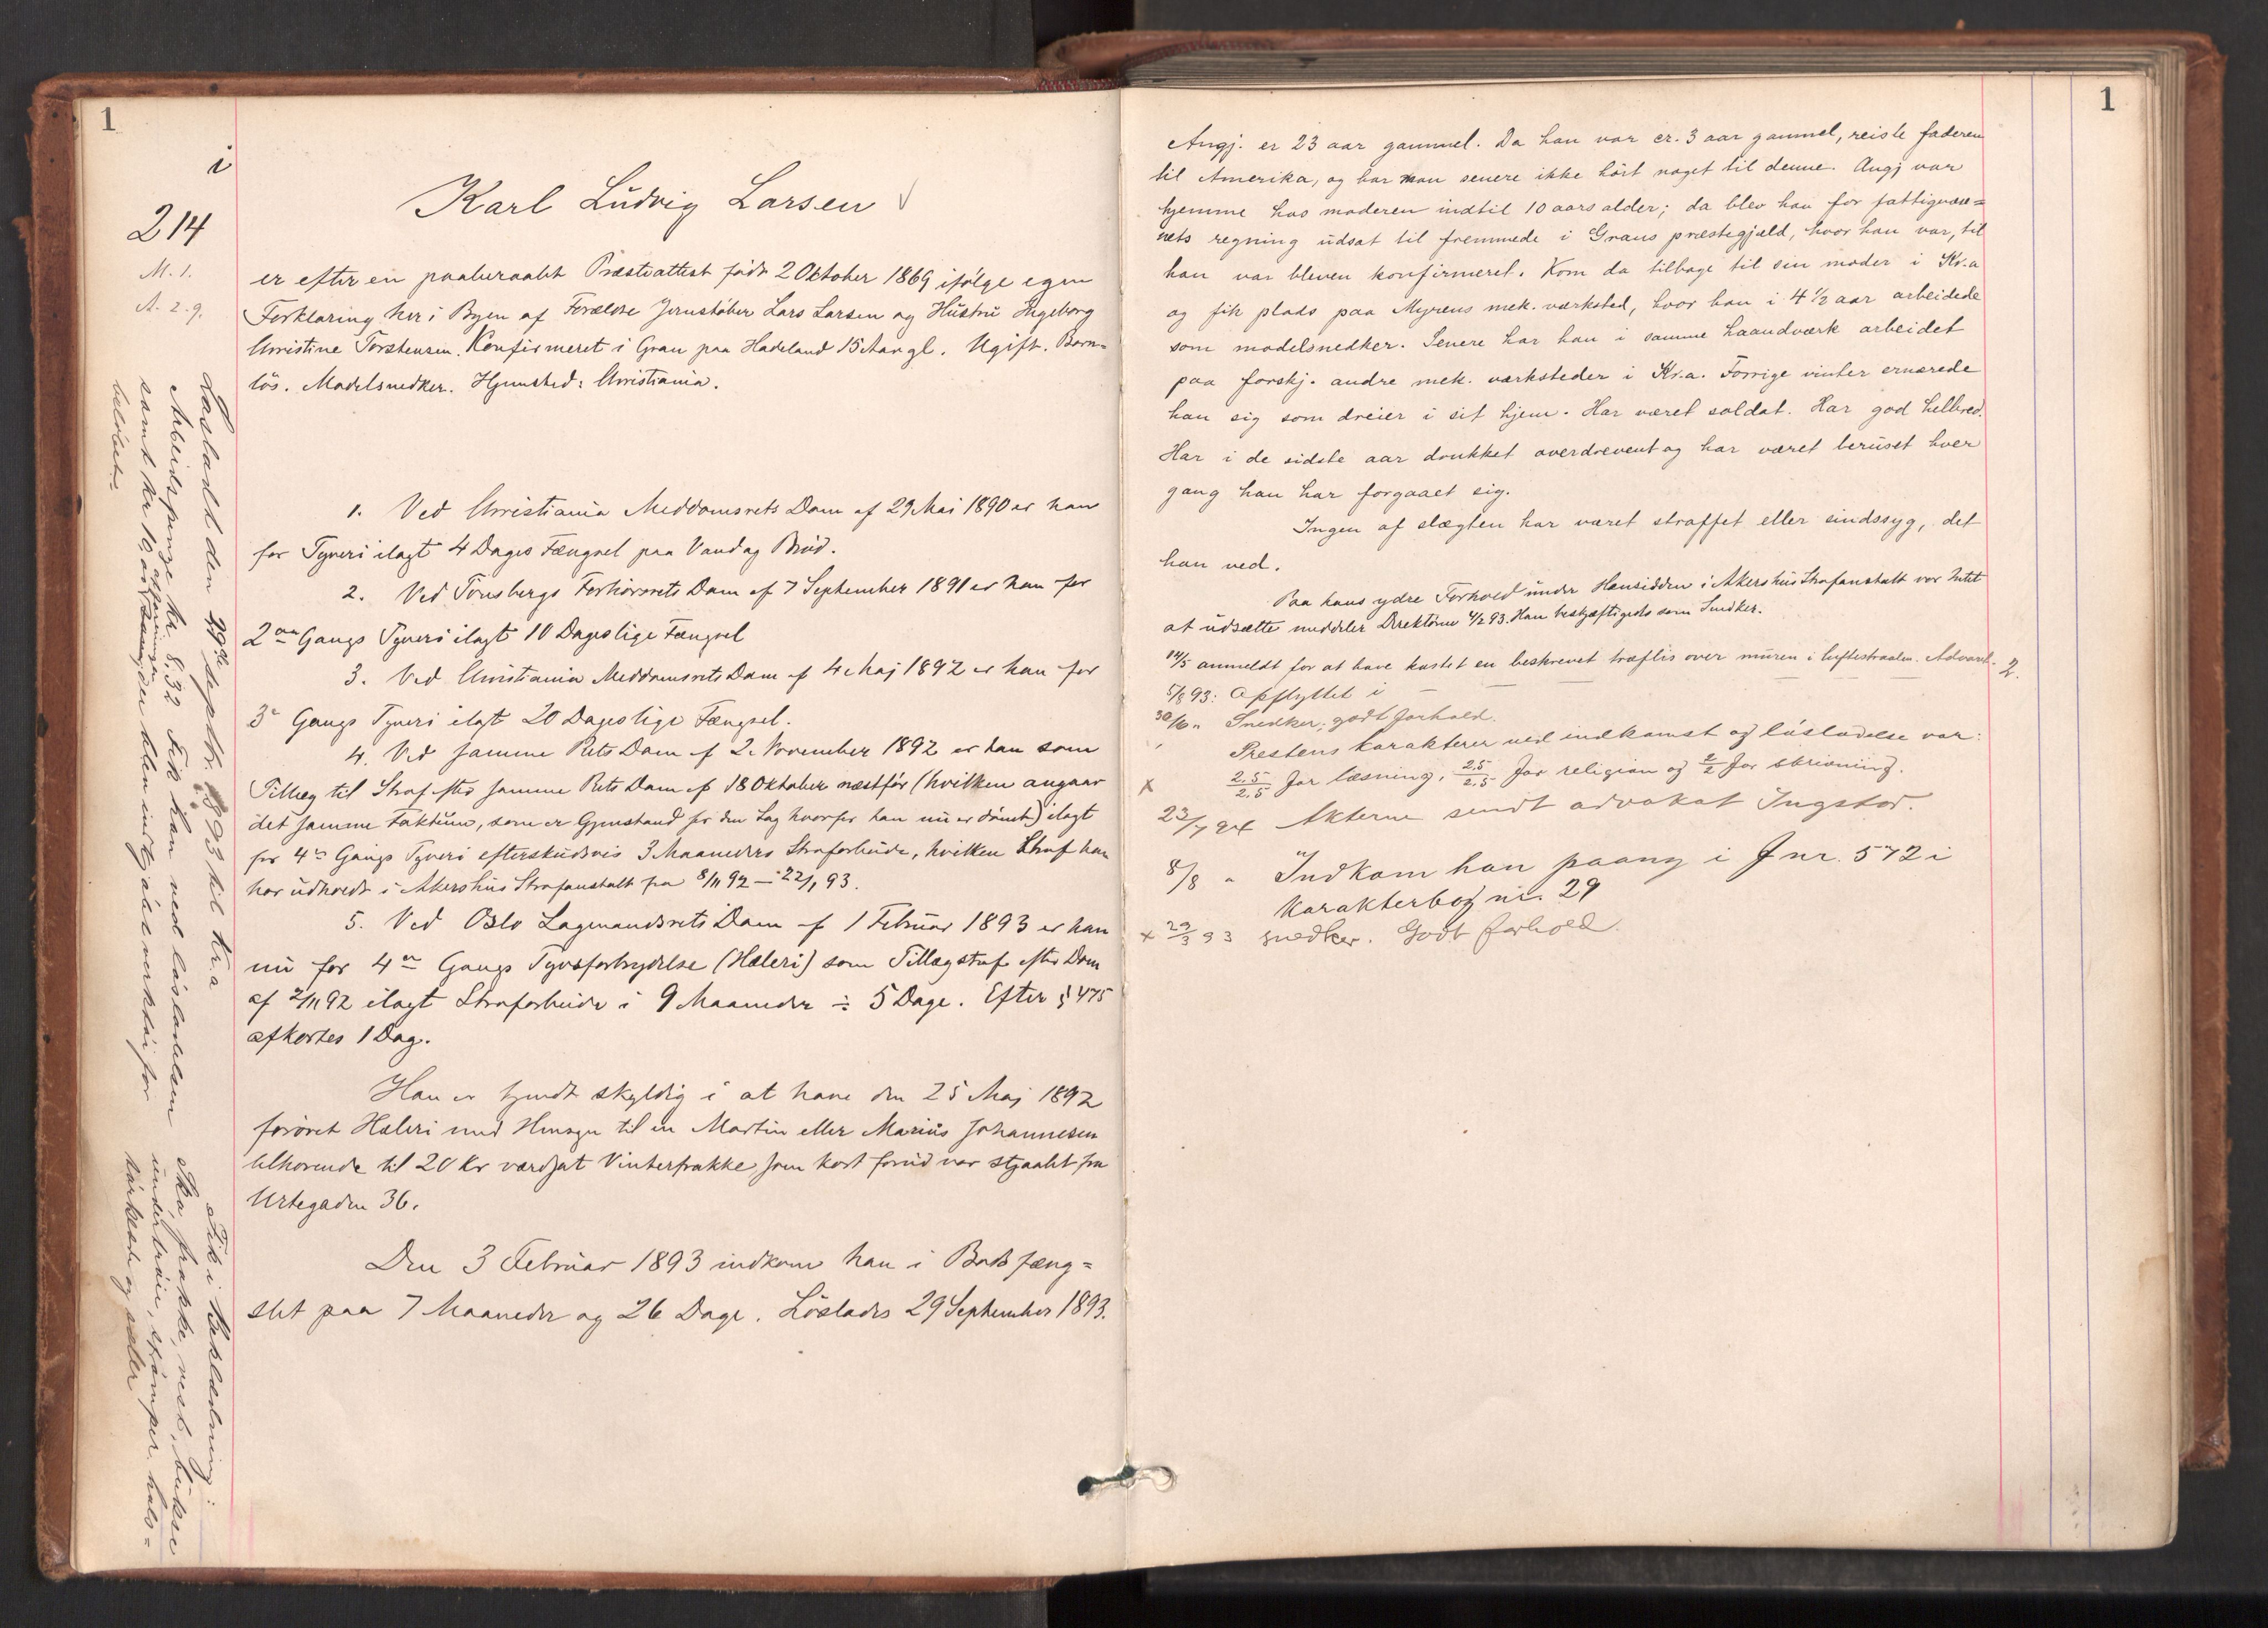 1
i
214
M. 1.
A. 2. g.
Karl Ludvig Larsen
er efter en paaberaabt Præsteattest född 2 Oktober 1869 ifölge egen
Forklaring her i Byen af Forældre Jernstöber Lars Larsen og Hustru Ingeborg
Christine Torstensen. Konfirmeret i Gran paa Hadeland 15 Aar gl. Ugift. Barn=
lös. Modelsnedker. Hjemsted: Christiania.
1. Ved Christiania Meddomsrets Dom af 29 Mai 1890 er han
for Tyveri ilagt 4 Dages Fængsel paa Vand og Bröd.
2. Ved Tönsbergs Forhörsrets Dom af 7 September 1891 er han for
2den Gangs Tyveri ilagt 10 Dages lige Fængsel
3. Ved Christiania Meddomsrets Dom af 4 Maj 1892 er han for
3e Gangs Tyveri ilagt 20 Dages lige Fængsel.
4. Ved samme Rets Dom af 2. November 1892 er han som
Tillæg til Straf efter samme Rets Dom af 18 Oktober næstför (hvilken angaar
det samme Faktum, som er Gjenstand for den Sag hvorfor han nu er dömt) ilagt
for 4de Gangs Tyveri efterskudsvis 3 Maaneders Strafarbeide, hvilken Straf han
har udholdt i Akershus Strafanstalt fra 8/11 92 – 22/1 93.
5. Ved Oslo Lagmandsrets Dom af 1 Februar 1893 er han
nu for 4de Gangs Tyvsforbrydelse (Hæleri) som Tillægsstraf efter Dom
af 2/11 92 ilagt Strafarbeide i 9 Maaneder ÷ 5 Dage. Efter § 475
afkortes 1 Dag.
Han er kjendt skyldig i at have den 25 Maj 1892
forövet Hæleri med Hensyn til en Martin eller Marius Johannesen
tilhörende til 20 Kr værdsat Vinterfrakke som kort forud var stjaalet fra
Urtegaden 36.
Den 3 Februar 1893 indkom han i Bodsfæng=
slet paa 7 Maaneder og 26 Dage. Löslades 29 September 1893.
Lösladt den 29de septbr. 1893 til Kr.a
Arbeidspenge kr. 8,32 Fik han ved löslatelsen
samt kr 10,00 af foreningen blev indkjöbt verktöi for
belöbet
Fik i beklædning:
Sko, frakke, vest, bukse
undertröie, strömper, hals=
törklæde og seler
1
Angj. er 23 aar gammel. Da han var cr. 3 aar gammel, reiste faderen
til Amerika, og har man senere ikke hört noget til denne. Angj var
hjemme hos moderen indtil 10 aars alder; da blev han for fattigvæse=
nets regning udsat til fremmede i Grans præstegjæld, hvor han var, til
han var bleven konfirmeret. Kom da tilbage til sin moder i Kr.a
og fik plads paa Myrens mek. værksted, hvor han i 4 1/2 aar arbeidede
som modelsnedker. Senere har han i samme haandværk arbeidet
paa forskj. andre mek. værksteder i Kr.a. Forrige vinter ernærede
han sig som dreier i sit hjem. Har været soldat. Har god helbred.
Har i de sidste aar drukket overdrevent og har været beruset hver
gang han har forgaaet sig.
Ingen af slægten har været straffet eller sindssyg, det
han ved.
Paa hans ydre Forhold under Hensidden i Akershus Strafanstalt var Intet
at udsætte meddeler Direktören 4/2 93. Han beskjæftigedes som Snedker.
14/5 anmeldt for at have kastet en beskrevet træflis over muren i luftestraalen. Advaret. 2.
5/8 93: Opflyttet i – – – –
30/6 " Snedker; godt forhold.
Prestens karakterer ved indkomst og lösladelse var:
x 2.5/2.5 for læsning, 2.5/2.5 for religion og 2/2 for skrivning.
23/7 94 Akterne sendt advokat Ingstad.
8/8 " Indkom han paany i J nr. 572 i
karakterbog nr. 29
x 29/3 93 snedker. Godt forhold.